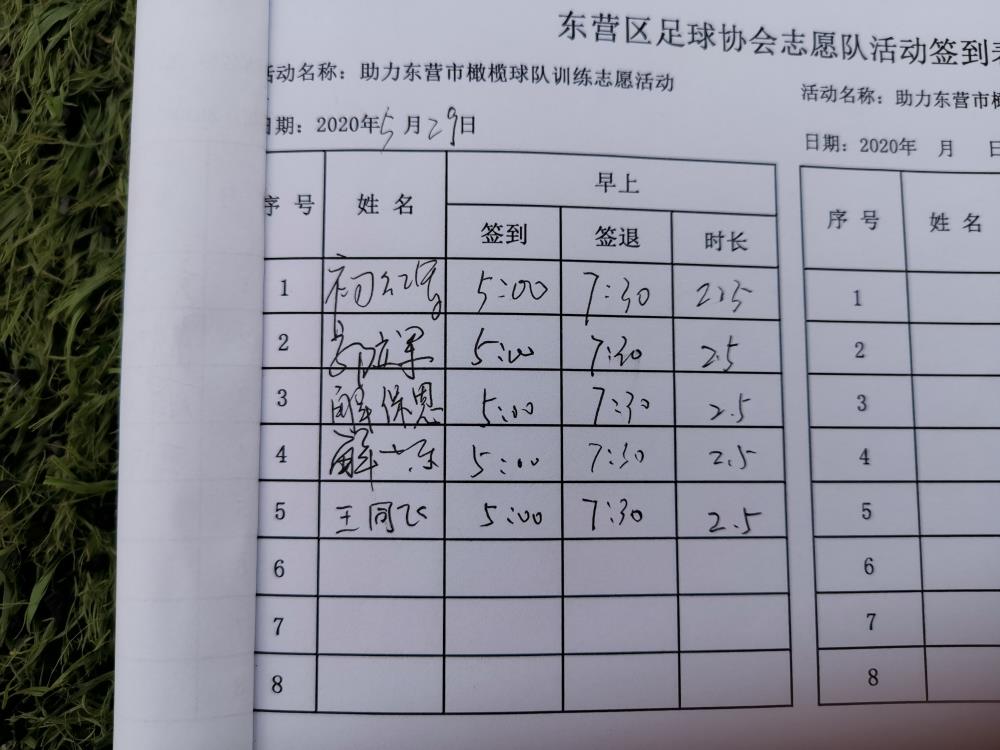 东营区足球协会志愿队活动签到表
活动名称：助力东营市橄榄球队训练志愿活动
日期：2020年5月29日
序号 姓名 早上
签到 签退 时长
1 5:00 7:30 2.5
2 5:00 7:30 2.5
3 薛保恩 5:00 7:30 2.5
4 5:00 7:30 2.5
5 王同飞 5:00 7:30 2.5
6
7
8
活动名称：助力东营市橄
日期：2020年 月 日
序号 姓名
1
2
3
4
5
6
7
8